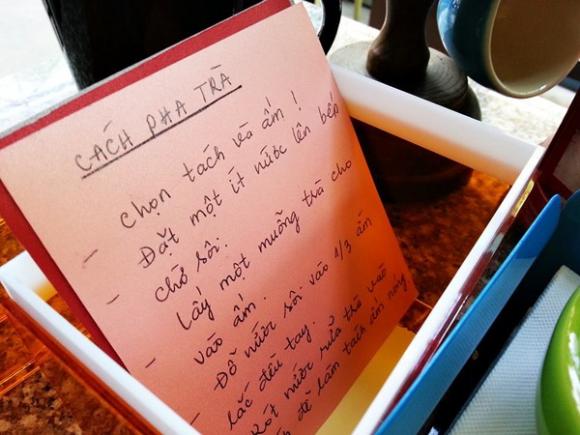 CÁCH PHA TRÀ
- Chọn tách và ấm !
- Đặt một ít nước lên bếp
chờ sôi.
- Lấy một muỗng trà cho
vào ấm.
- Đổ nước sôi vào 1/3 ấm
lắc đều tay.
Rót nước rửa trà vào
để làm tách ấm nóng